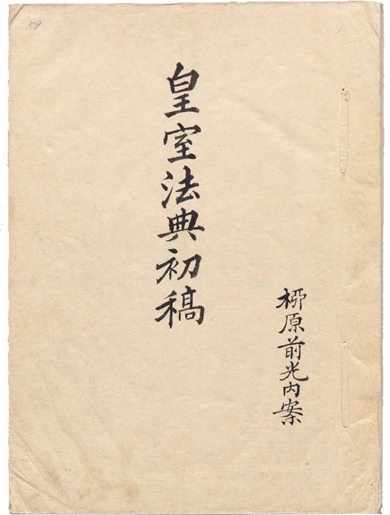 皇室法典初稿
柳原前光内案
59